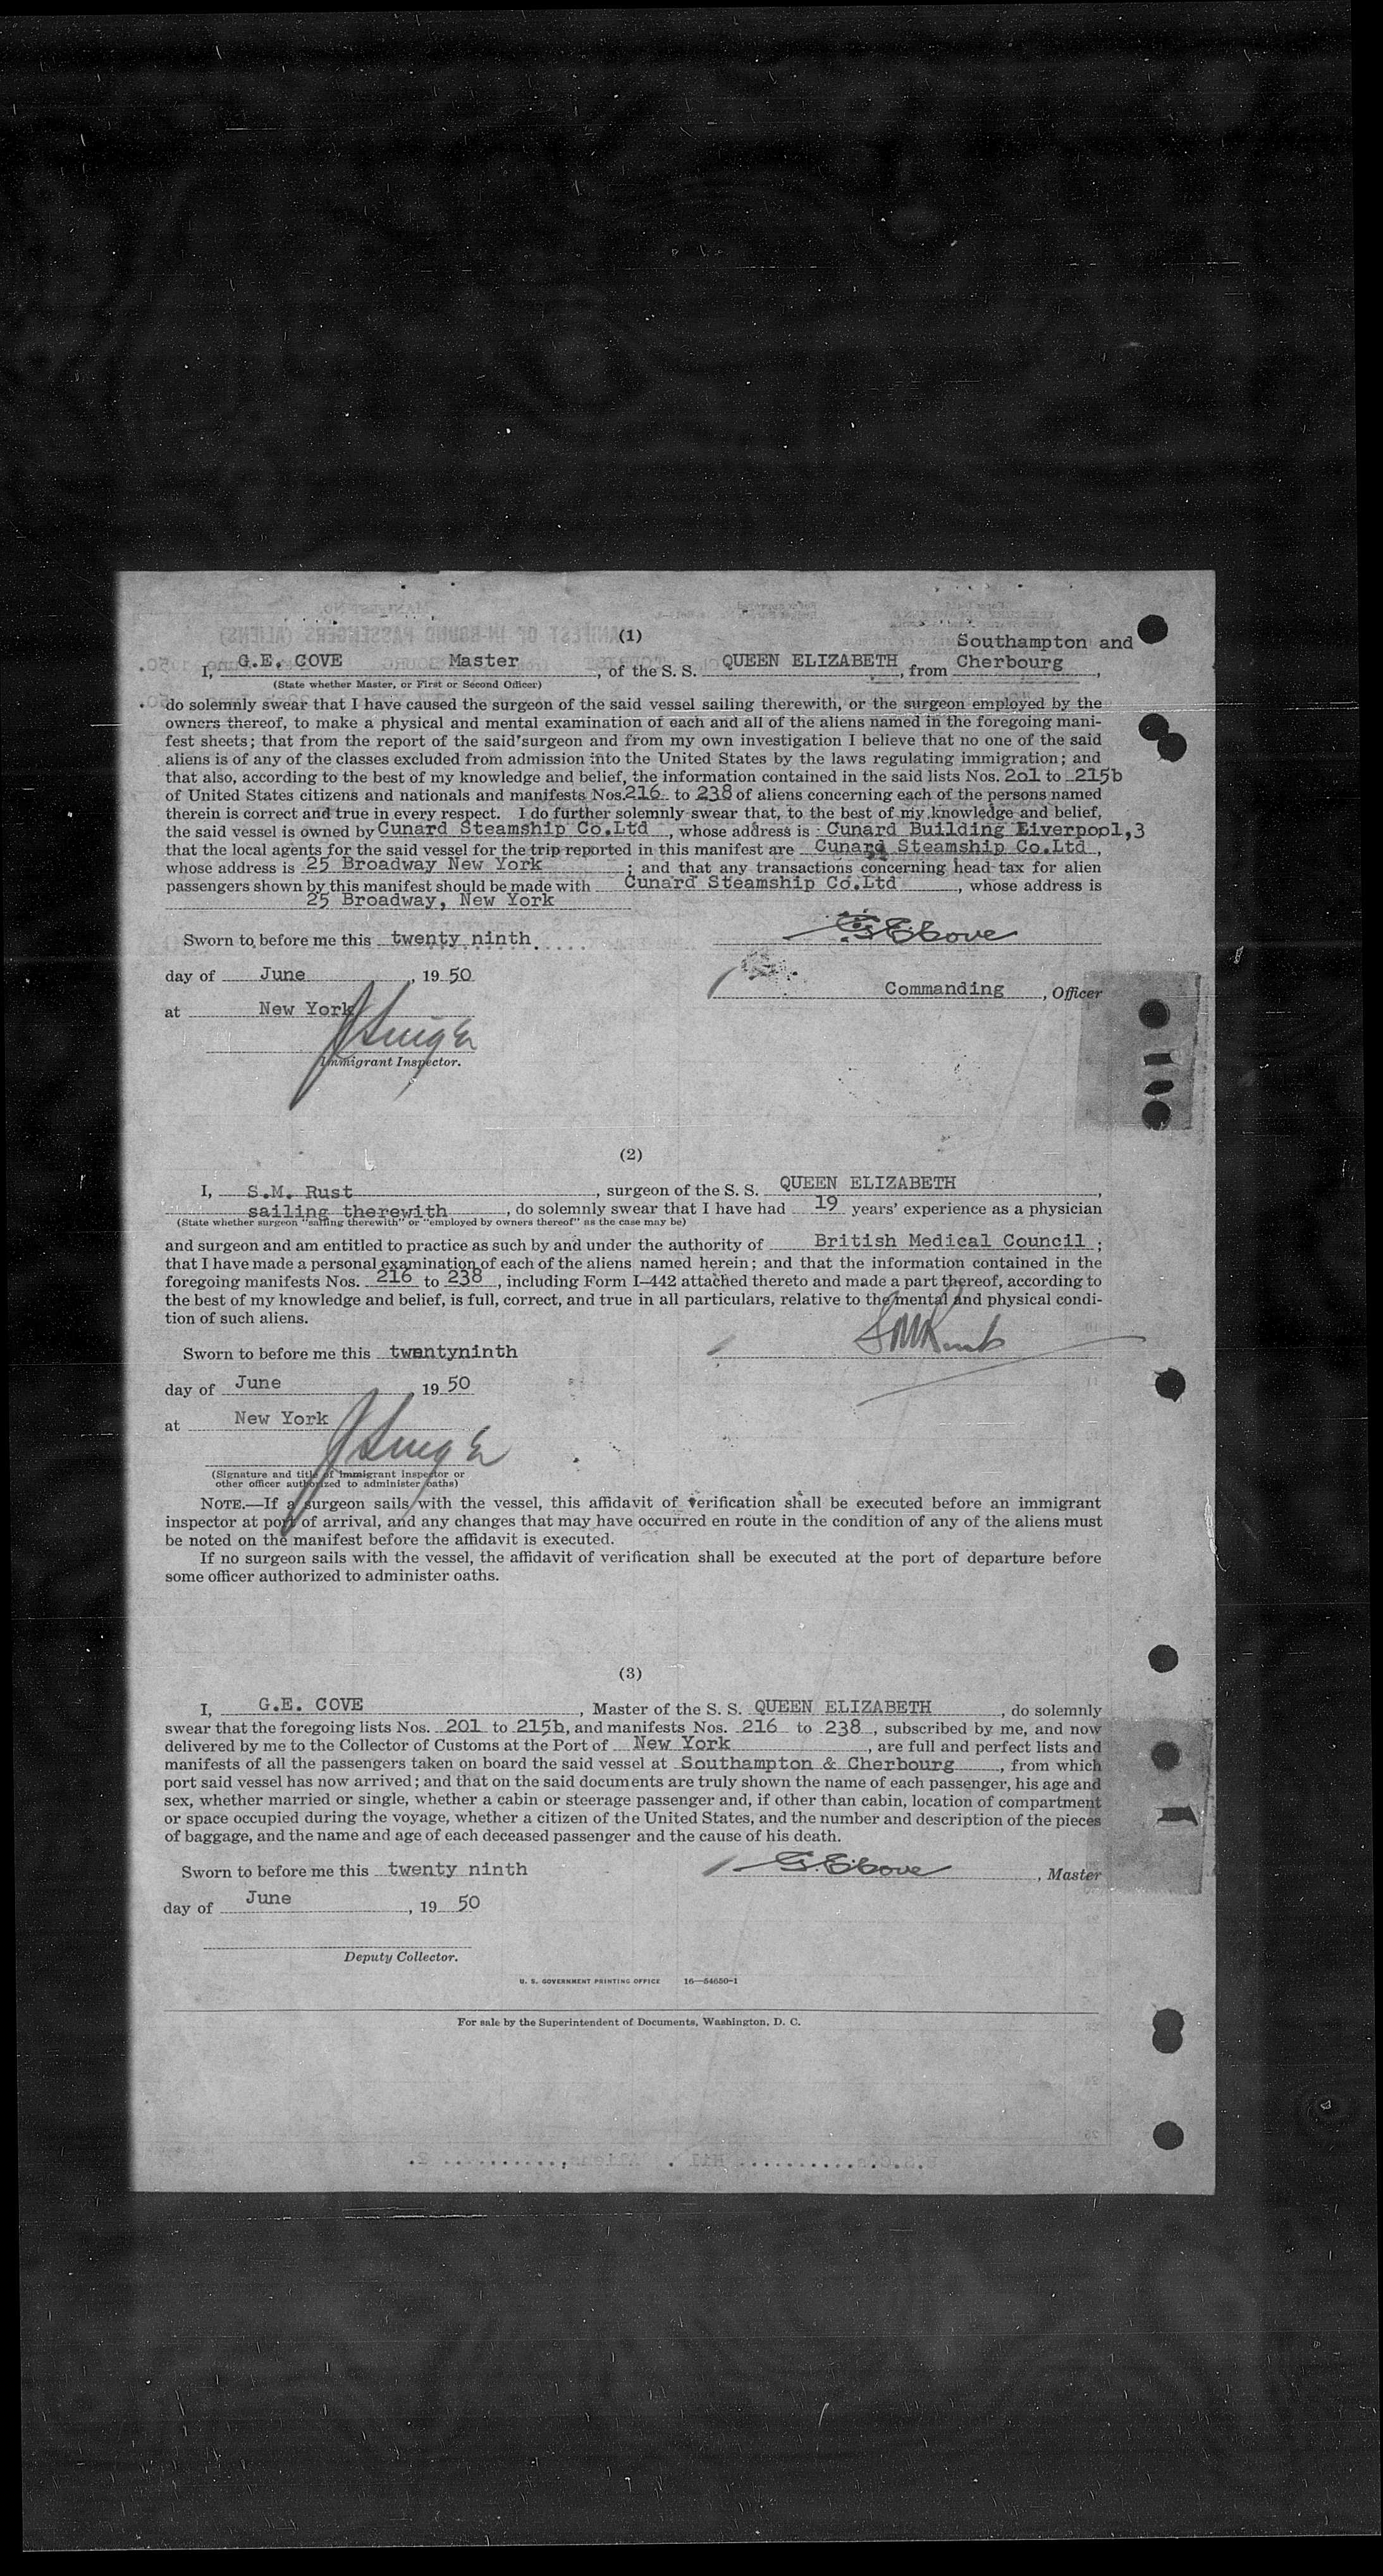 (1)
Southampton and
I, G.E. COVE Master, of the S. S. QUEEN ELIZABETH, from Cherbourg,
(State whether Master, or First or Second Officer)
do solemnly swear that I have caused the surgeon of the said vessel sailing therewith, or the surgeon employed by the
owners thereof, to make a physical and mental examination of each and all of the aliens named in the foregoing mani-
fest sheets; that from the report of the said surgeon and from my own investigation I believe that no one of the said
aliens is of any of the classes excluded from admission into the United States by the laws regulating immigration; and
that also, according to the best of my knowledge and belief, the information contained in the said lists Nos. 201 to 215b
of United States citizens and nationals and manifests Nos. 216 to 238 of aliens concerning each of the persons named
therein is correct and true in every respect. I do further solemnly swear that, to the best of my knowledge and belief,
the said vessel is owned by Cunard Steamship Co.Ltd, whose address is Cunard Building Liverpool,3
that the local agents for the said vessel for the trip reported in this manifest are Cunard Steamship Co.Ltd,
whose address is 25 Broadway New York; and that any transactions concerning head tax for alien
passengers shown by this manifest should be made with Cunard Steamship Co.Ltd, whose address is
25 Broadway, New York
Sworn to before me this twenty ninth G E Cove
day of June, 19 50
Commanding, Officer
at New York
J Singer
Immigrant Inspector.
(2)
I, S.M. Rust, surgeon of the S. S. QUEEN ELIZABETH,
sailing therewith, do solemnly swear that I have had 19 years' experience as a physician
(State whether surgeon "sailing therewith" or "employed by owners thereof" as the case may be)
and surgeon and am entitled to practice as such by and under the authority of British Medical Council;
that I have made a personal examination of each of the aliens named herein; and that the information contained in the
foregoing manifests Nos. 216 to 238, including Form I-442 attached thereto and made a part thereof, according to
the best of my knowledge and belief, is full, correct, and true in all particulars, relative to the mental and physical condi-
tion of such aliens.
S M Rust
Sworn to before me this twentyninth
day of June, 19 50
at New York
J Singer
(Signature and title of immigrant inspector or
other officer authorized to administer oaths)
NOTE.—If a surgeon sails with the vessel, this affidavit of verification shall be executed before an immigrant
inspector at port of arrival, and any changes that may have occurred en route in the condition of any of the aliens must
be noted on the manifest before the affidavit is executed.
If no surgeon sails with the vessel, the affidavit of verification shall be executed at the port of departure before
some officer authorized to administer oaths.
(3)
I, G.E. COVE, Master of the S. S. QUEEN ELIZABETH, do solemnly
swear that the foregoing lists Nos. 201 to 215b, and manifests Nos. 216 to 238, subscribed by me, and now
delivered by me to the Collector of Customs at the Port of New York, are full and perfect lists and
manifests of all the passengers taken on board the said vessel at Southampton & Cherbourg, from which
port said vessel has now arrived; and that on the said documents are truly shown the name of each passenger, his age and
sex, whether married or single, whether a cabin or steerage passenger and, if other than cabin, location of compartment
or space occupied during the voyage, whether a citizen of the United States, and the number and description of the pieces
of baggage, and the name and age of each deceased passenger and the cause of his death.
Sworn to before me this twenty ninth G.E. Cove, Master
day of June, 19 50
Deputy Collector.
U. S. GOVERNMENT PRINTING OFFICE 16—54650-1
For sale by the Superintendent of Documents, Washington, D. C.